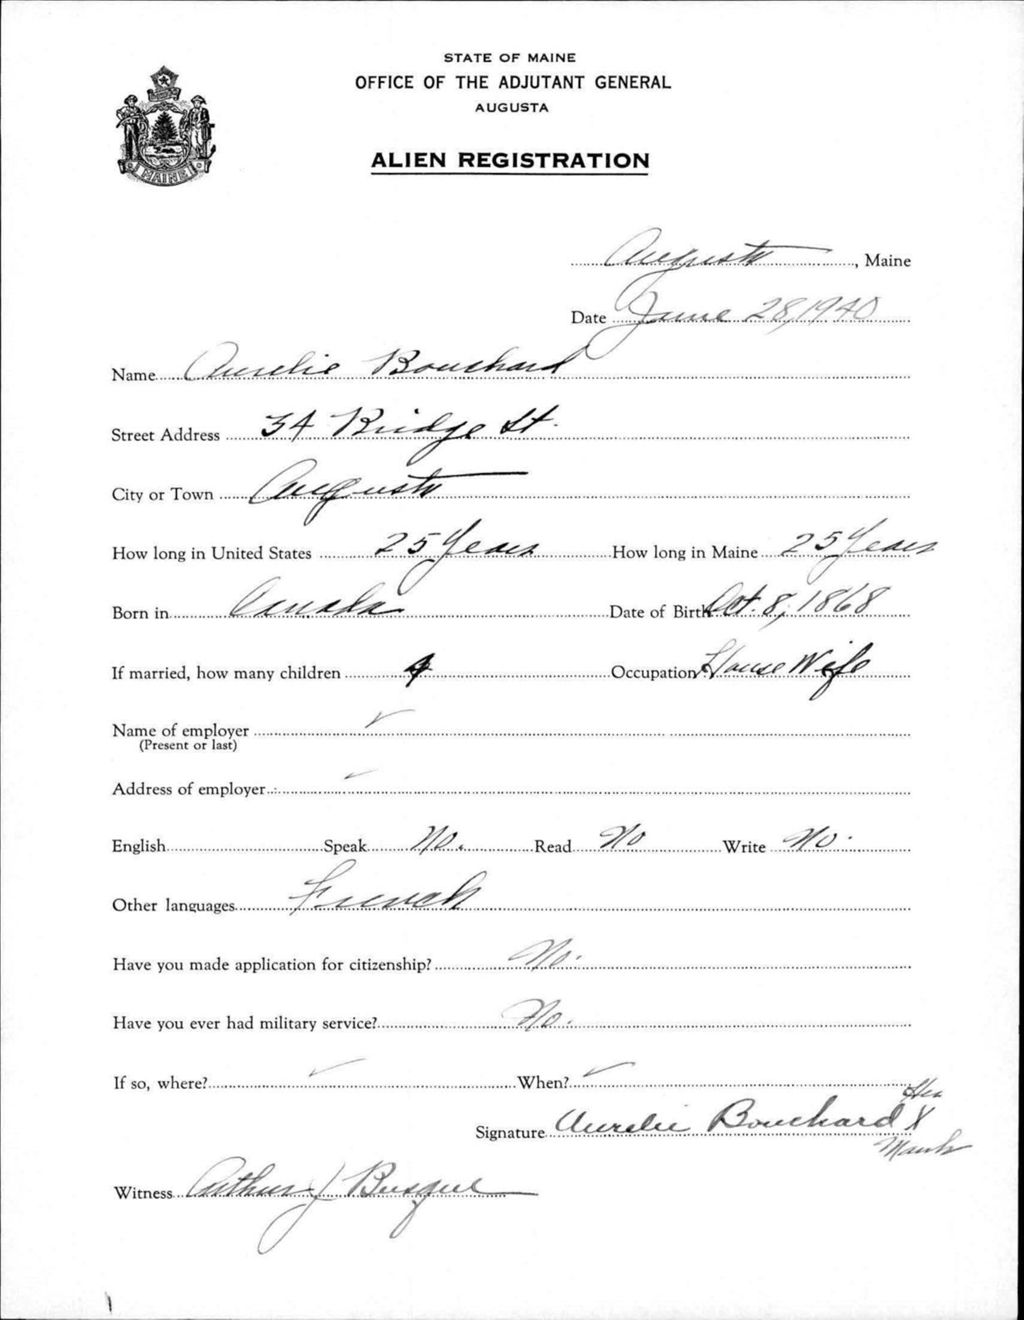 STATE OF MAINE
OFFICE OF THE ADJUTANT GENERAL
AUGUSTA
ALIEN REGISTRATION
MAINE
Augusta, Maine
Date June 28, 1940
Name Aurelie Bouchard
Street Address 34 Bridge St.
City or Town Augusta
How long in United States 25 Years How long in Maine 25 Years
Born in Canada Date of Birth Oct. 8, 1868
If married, how many children 4 Occupation House Wife
Name of employer
(Present or last)
Address of employer
English Speak No. Read No Write No.
Other languages French
Have you made application for citizenship? No.
Have you ever had military service? No.
If so, where? When?
Her
Signature Aurelie Bouchard X
Mark
Witness Arthur J Busque